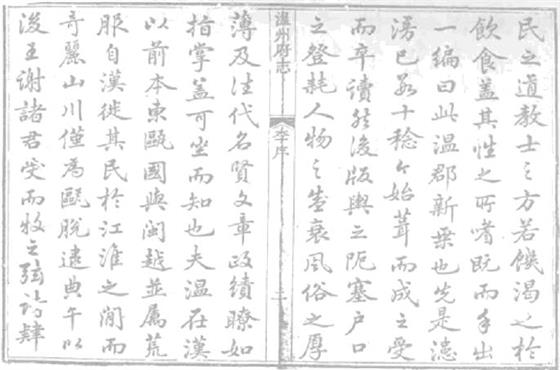 民之道教士之方若饑渴之於
飲食蓋其性之所嗜既而手出
一編曰此溫郡新乗也先是漶
漫已數十稔今始葺而成之受
而卒讀然後版輿之阨塞户口
之登耗人物之盛衰風俗之厚
溫州府志
李序
薄及往代名賢文章政績瞭如
指掌蓋可坐而知也夫溫在漢
以前本東甌國與閩越並屬荒
服自漢徙其民於江淮之間而
奇麗山川僅為甌脱逮典午以
後王謝諸君受而牧之弦誦肄